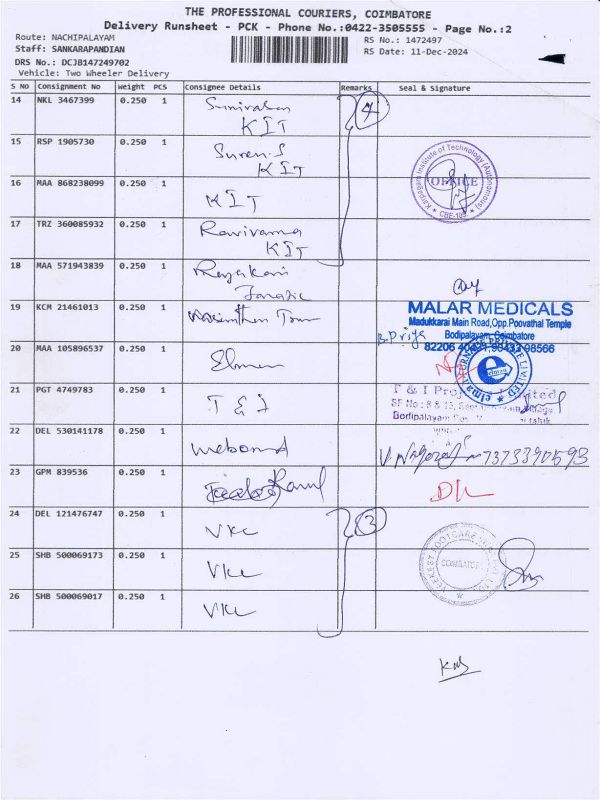 THE PROFESSIONAL COURIERS, COIMBATORE
Delivery Runsheet - PCK - Phone No.:0422-3505555 - Page No.:2
Route: NACHIPALAYAM
RS No.: 1472497
Staff: SANKARAPANDIAN
RS Date: 11-Dec-2024
DRS No.: DCJB147249702
Vehicle: Two Wheeler Delivery
S No Consignment No Weight PCS Consignee Details Remarks Seal & Signature
14 NKL 3467399 0.250 1 4
KIT
15 RSP 1905730 0.250 1 Suren.S
KIT
Karpagam Institute of Technology (Autonomous)
OFFICE
CBE-105
16 MAA 868238099 0.250 1 KIT
17 TRZ 360085932 0.250 1 Ravivarma
KIT
18 MAA 571943839 0.250 1
19 KCM 21461013 0.250 1
MALAR MEDICALS
Madukkarai Main Road,Opp.Poovathal Temple
B.Priya Bodipalayam, Coimbatore
82206
20 MAA 105896537 0.250 1 Elmen
21 PGT 4749783 0.250 1 T & I
T & I
Bodipalayam
22 DEL 530141178 0.250 1
23 GPM 839536 0.250 1
24 DEL 121476747 0.250 1 VKC 3
25 SHB 500069173 0.250 1 VKC
COIMBATORE
26 SHB 500069017 0.250 1 VKC